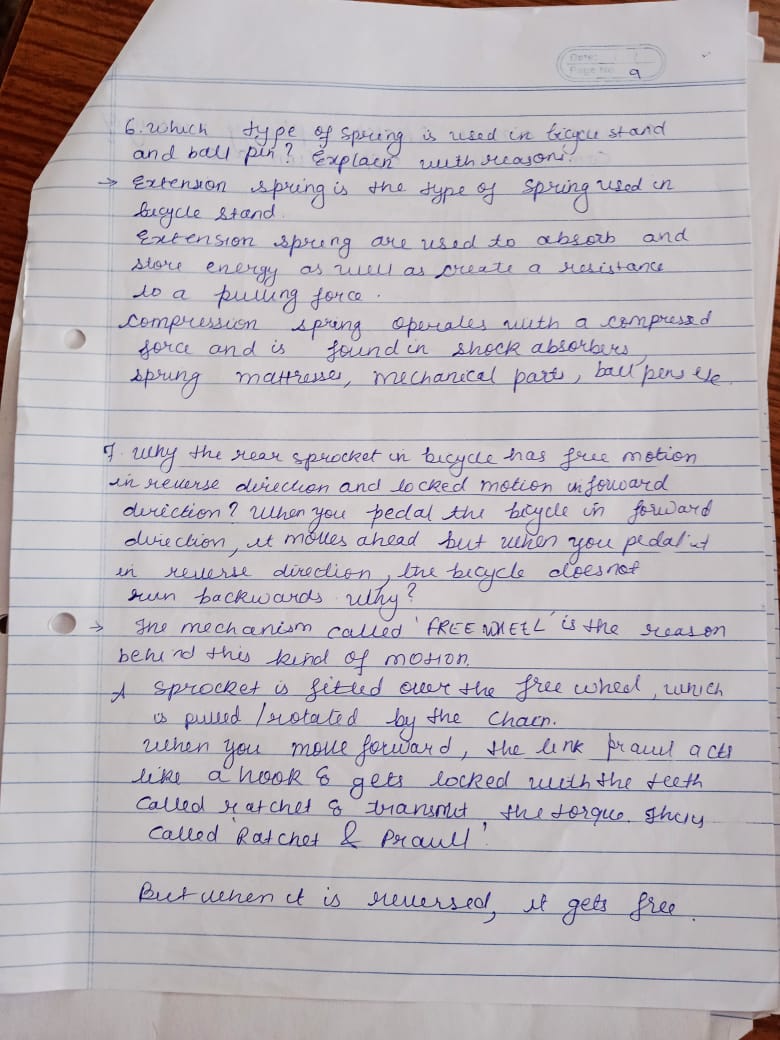 Date:
Page No. 9
6. Which type of spring is used in bicycle stand
and ball pin? Explain with reasons.
→ Extension spring is the type of spring used in
bicycle stand.
Extension spring are used to absorb and
store energy as well as create a resistance
to a pulling force.
Compression spring operates with a compressed
force and is found in shock absorbers,
spring mattresses, mechanical parts, ball pens etc.
7. Why the rear sprocket in bicycle has free motion
in reverse direction and locked motion in forward
direction? When you pedal the bicycle in forward
direction, it moves ahead but when you pedal it
in reverse direction, the bicycle does not
run backwards. Why?
→ The mechanism called 'FREE WHEEL' is the reason
behind this kind of motion.
A sprocket is fitted over the free wheel, which
is pulled / rotated by the chain.
When you move forward, the link prawl acts
like a hook & gets locked with the teeth
called ratchet & transmit the torque. They
called 'Ratchet & Prawll'.
But when it is reversed, it gets free.